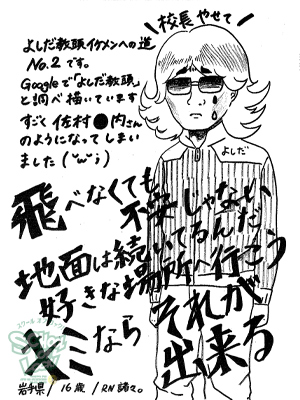 \校長やせて/
よしだ教頭イケメンへの道
No.2です。
Googleで「よしだ教頭」
と調べ描いています
すごく佐村●内さん
のようになってしまい
ました(˘ω˘;)
よしだ
飛べなくても不安じゃない
地面は続いてるんだ
好きな場所へ行こう
キミならそれが
出来る
岩手県/16歳/RN諸々。